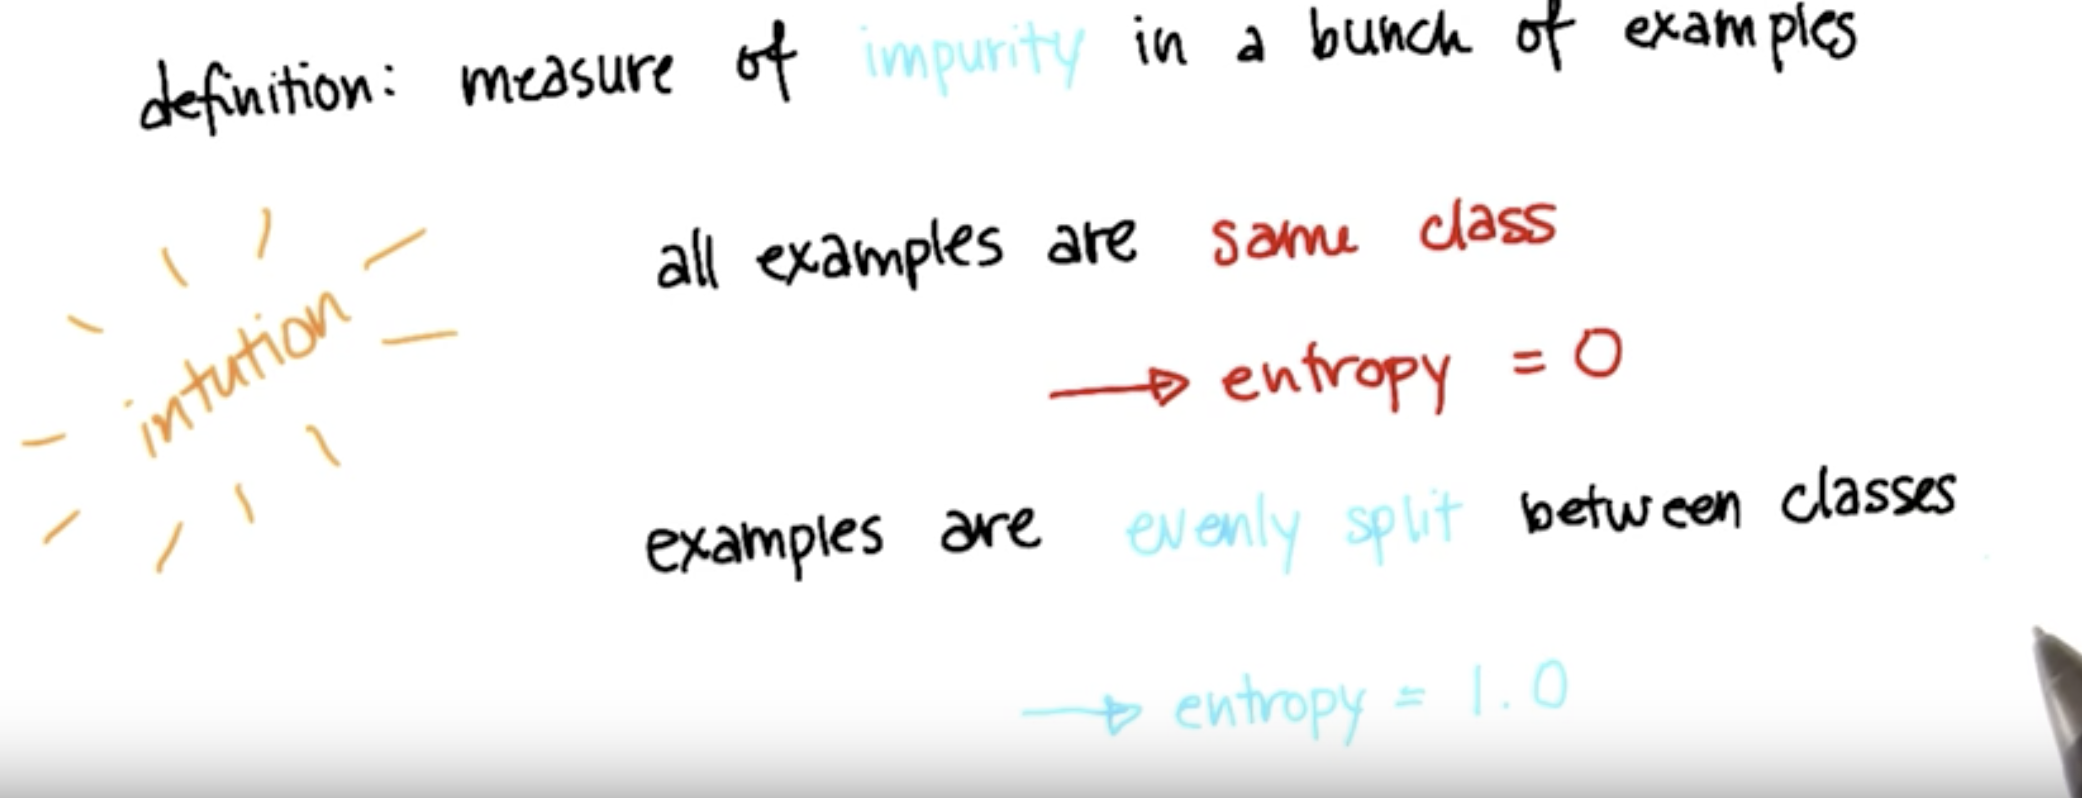 definition: measure of impurity in a bunch of examples
all examples are same class
intution
→ entropy = 0
examples are evenly split between classes
→ entropy = 1.0